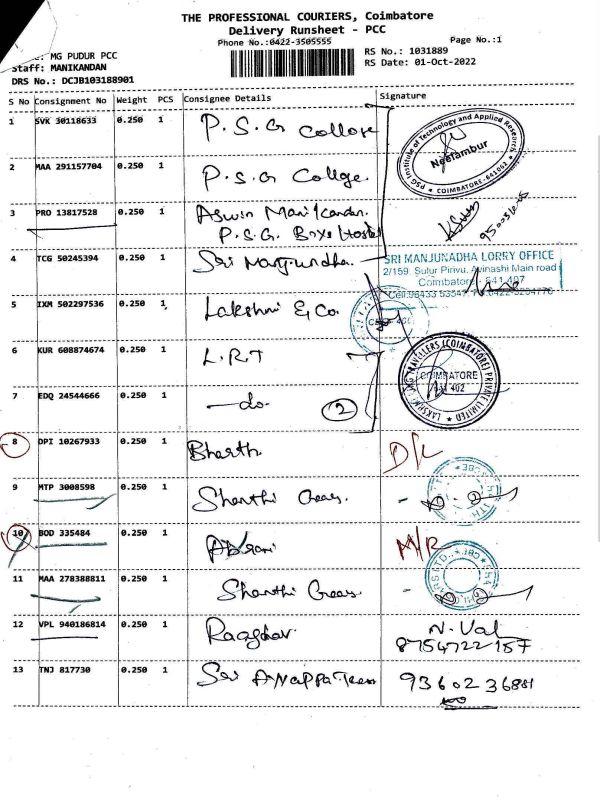 THE PROFESSIONAL COURIERS, Coimbatore
Delivery Runsheet - PCC
Phone No.:0422-3505555
Page No.:1
MG PUDUR PCC
RS No.: 1031889
Staff: MANIKANDAN
RS Date: 01-Oct-2022
DRS No.: DCJB103188901
S No Consignment No Weight PCS Consignee Details Signature
1 SVK 30118633 0.250 1 P.S.G College
PSG Institute of Technology and Applied Research
Neelambur
COIMBATORE-641 062
2 MAA 291157704 0.250 1 P.S.G College.
3 PRO 13817528 0.250 1 Aswin Manikandan.
P.S.G. Boys Hostel
4 TCG 50245394 0.250 1 Sri Manjundha.
SRI MANJUNADHA LORRY OFFICE
2/159, Sulur Pirivu, Avinashi Main road
Coimbatore 641 407
5 IXM 502297536 0.250 1 Lakshmi & Co.
6 KUR 608874674 0.250 1 L.R.T
TRAVELERS (COIMBATORE) PRIVATE LIMITED
COIMBATORE
641 402
7 EDQ 24544666 0.250 1 -do- 2
8 DPI 10267933 0.250 1 Bharth. D/L
9 MTP 3008598 0.250 1 Shanthi Gears.
10 BOD 335484 0.250 1 M/R
11 MAA 278388811 0.250 1 Shanthi Gears.
12 VPL 940186814 0.250 1 Raaghav. N.Val
8754722157
13 TNJ 817730 0.250 1 Sri 9360236881